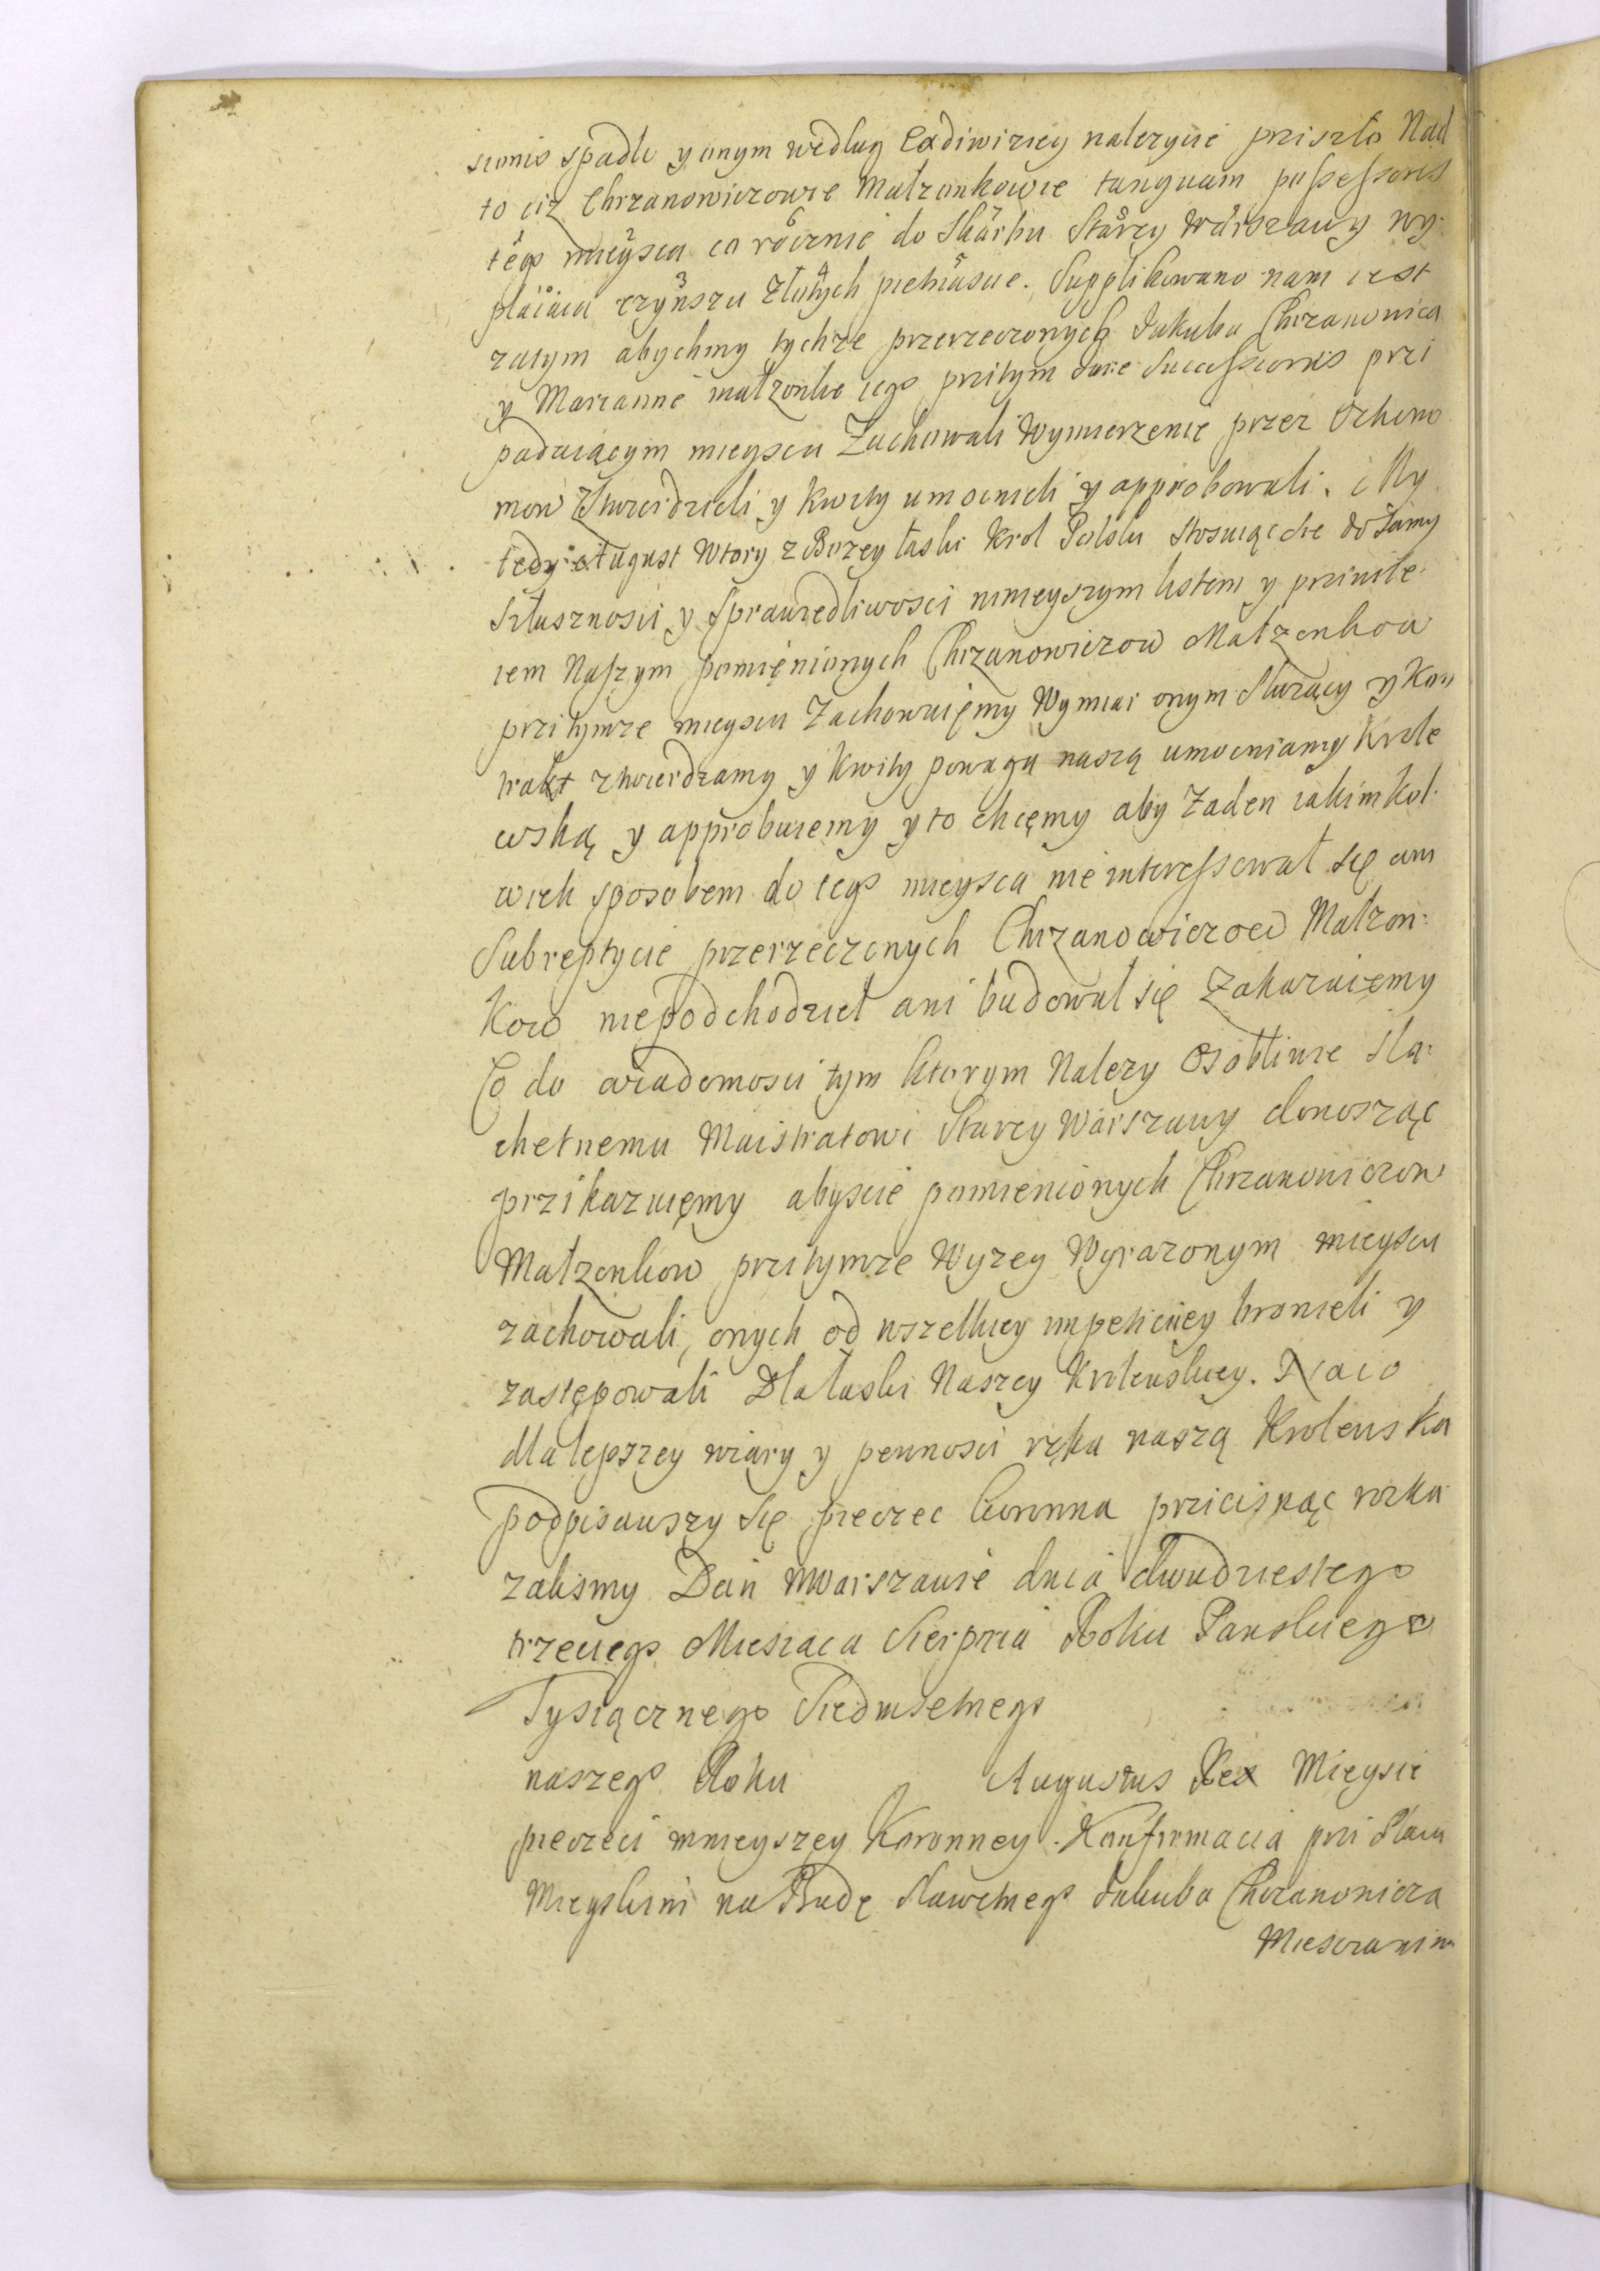 sionis spadło y onym według Exdiwiziey należycie przisżło Nad
to ciż Chrzanowiczowie Małzonkowie tanquam possessores
tego mieysca co rocznie do Skarbu Starey Warszawy wy-
płaiaia czynszu Złotych pietnascie. Supplikowano nam iest
zatym abychmy tychże przerzeczonych Jakuba Chrzanowicza
y Mariannę małzonkę iego przitym iure Successionis przi
padaiącym mieyscu Zachowali Wymierzenie przez
mow Ztwierdzieli y kwity umocnieli y approbowali. i My
tedy August Wtory z Bozey łaski Krol Polski stosuiąc sie do samy
Słusznosci y Sprawiedliwosci ninieyszym listem y prziwile-
iem Naszym pomięnionych Chrzanowiczow Małzonkow
przitymze mieyscu Zachowuięmy Wymiar onym słuzący y Kon
trakt ztwierdzamy y kwity powagą naszą umocniamy Krole
wską y approbuiemy y to chcęmy aby Zaden iakimkol-
wiek sposobem do tego mieysca nie interessował się ani
Subreptycie przerzeczonych Chrzanowiczow Małzon-
kow niepodchodzieł ani budował się Zakazuięmy
Co do wiadomosci tym ktorym Nalezy osobliwie sla-
chetnemu Maistratowi Starey Warszawy donosząc
przikazuięmy abyscie pomienionych Chrzanowiczow
Małzonkow przitymze Wyzey Wyrazonym mieyscu
zachowali, onych od wszelkiey impeticiiey bronieli y
zastępowali Dla łaski Naszey Krolewskiey. Na co
dla lepszey wiary y pewnosci ręką naszą Krolewska
podpisawszy się pieczec koronna przicisnąc rozka
zalismy Dan Wwarszawie dnia dwudziestego
trzeciego Miesiaca Sierpnia Roku Panskiego
Tysiącznego Siedmsetnego
naszego Roku Augustus Rex Mieysce
pieczeci mnieyszey Koronney. Konfirmacia przi
Mieyskim na Budę Sławetnego Jakuba Chrzanowicza
Miesczanina